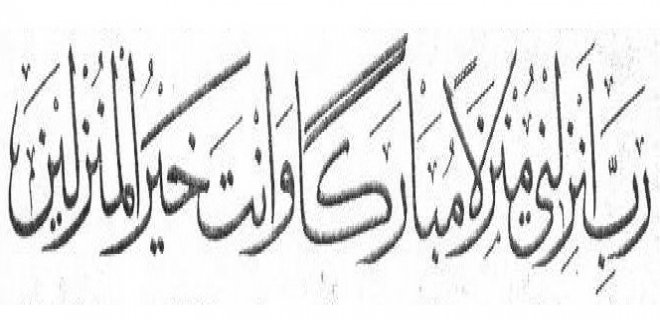 رَبِّ اَنْزِلْنِي مُنْزَلًا مُبَارَكًا وَاَنْتَ خَيْرُ الْمُنْزِلِيْنَ